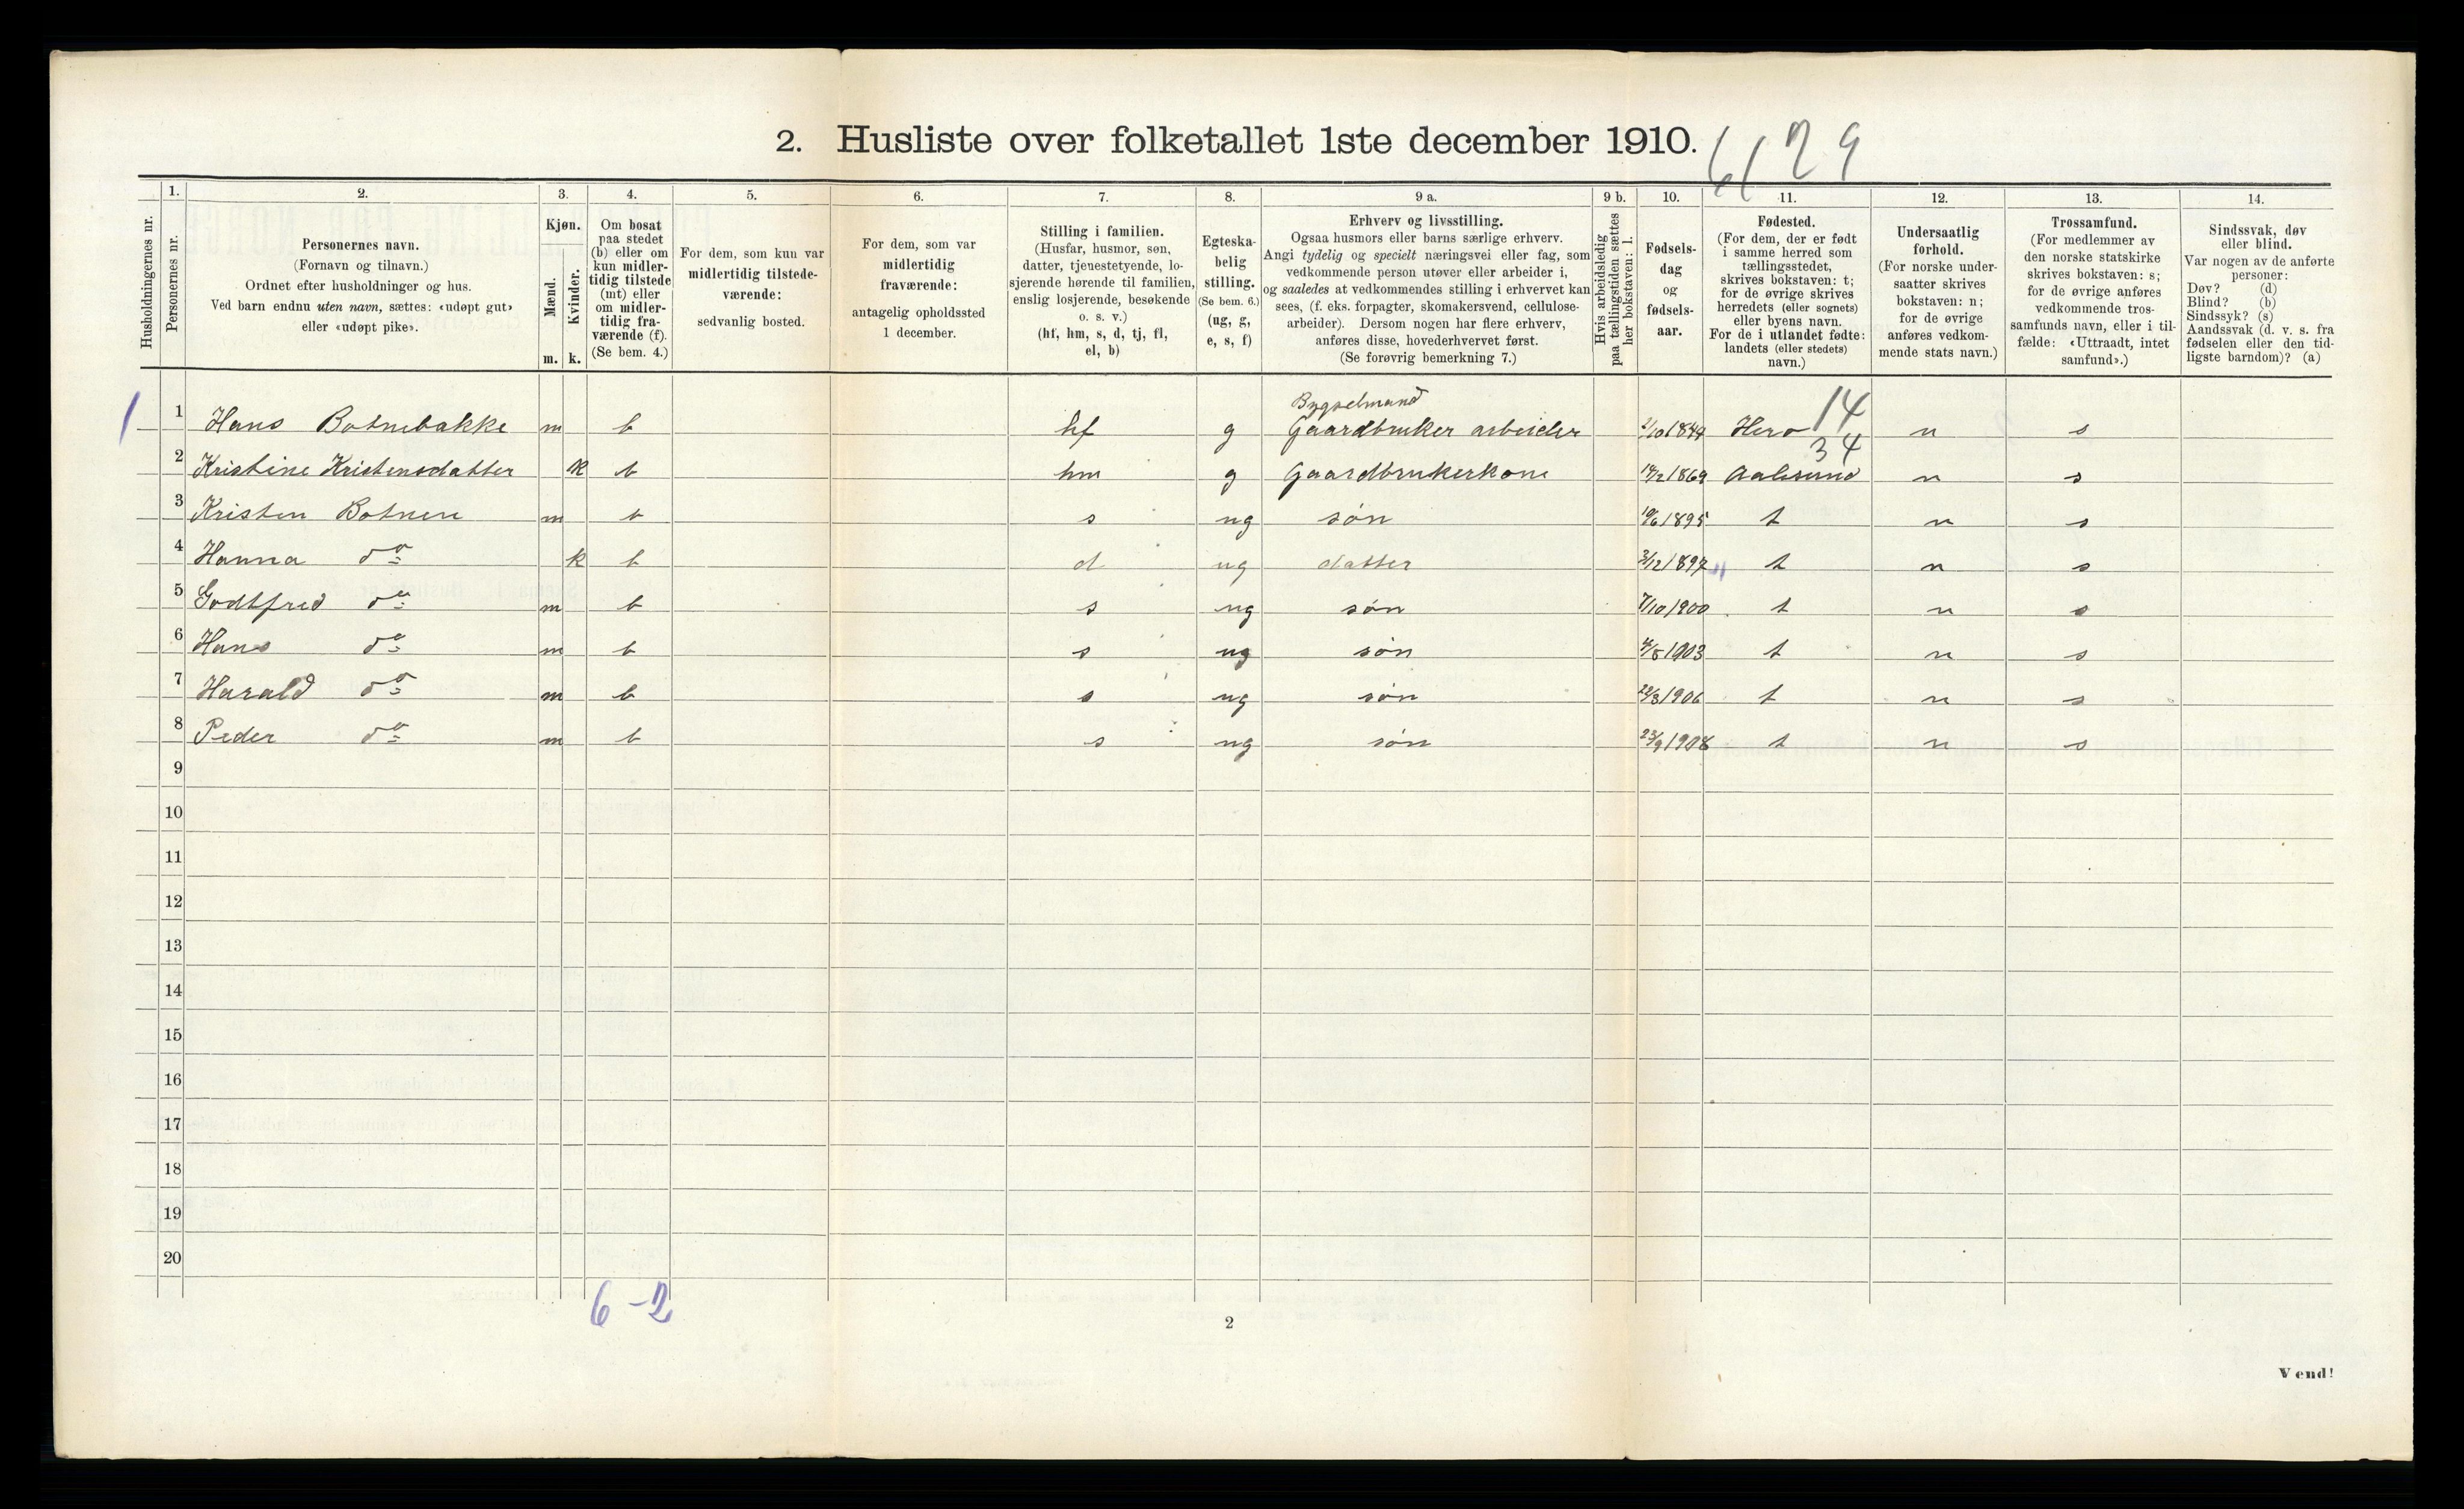 2. Husliste over folketallet 1ste december 1910.
6/29
Husholdningernes nr.
1.
Personernes nr.
2.
Personernes navn.
(Fornavn og tilnavn.)
Ordnet efter husholdninger og hus.
Ved barn endnu uten navn, sættes: «udøpt gut»
eller «udøpt pike».
3.
Kjøn.
Mænd.
Kvinder.
m. k.
4.
Om bosat
paa stedet
(b) eller om
kun midler-
tidig tilstede
(mt) eller
om midler-
tidig fra-
værende (f).
(Se bem. 4.)
5.
For dem, som kun var
midlertidig tilstede-
værende:
sedvanlig bosted.
6.
For dem, som var
midlertidig
fraværende:
antagelig opholdssted
1 december.
7.
Stilling i familien.
(Husfar, husmor, søn,
datter, tjenestetyende, lo-
sjerende hørende til familien,
enslig losjerende, besøkende
o. s. v.)
(hf, hm, s, d, tj, fl,
el, b)
8.
Egteska-
belig
stilling.
(Se bem. 6.)
(ug, g,
e, s, f)
9 a.
Erhverv og livsstilling.
Ogsaa husmors eller barns særlige erhverv.
Angi tydelig og specielt næringsvei eller fag, som
vedkommende person utøver eller arbeider i,
og saaledes at vedkommendes stilling i erhvervet kan
sees, (f. eks. forpagter, skomakersvend, cellulose-
arbeider). Dersom nogen har flere erhverv,
anføres disse, hovederhvervet først.
(Se forøvrig bemerkning 7.)
9 b.
Hvis arbeidsledig
paa tællingstiden sættes
her bokstaven: l.
10.
Fødsels-
dag
og
fødsels-
aar.
11.
Fødested.
(For dem, der er født
i samme herred som
tællingsstedet,
skrives bokstaven: t;
for de øvrige skrives
herredets (eller sognets)
eller byens navn.
For de i utlandet fødte:
landets (eller stedets)
navn.)
12.
Undersaatlig
forhold.
(For norske under-
saatter skrives
bokstaven: n;
for de øvrige
anføres vedkom-
mende stats navn.)
13.
Trossamfund.
(For medlemmer av
den norske statskirke
skrives bokstaven: s;
for de øvrige anføres
vedkommende tros-
samfunds navn, eller i til-
fælde: «Uttraadt, intet
samfund».)
14.
Sindssvak, døv
eller blind.
Var nogen av de anførte
personer:
Døv? (d)
Blind? (b)
Sindssyk? (s)
Aandssvak (d. v. s. fra
fødselen eller den tid-
ligste barndom)? (a)
Bygselmand 14
1 1 Hans Botnebakke m b hf g Gaardbruker arbeider 2/10 1844 Herø n s
34
2 Kristine Kristensdatter k b hm g Gaardbrukerkone 14/2 1869 Aalesund n s
3 Kristen Botnen m b s ug søn 10/6 1895 t n s
4 Hanna do k b d ug datter 3/12 1897 t n s
5 Godtfred do m b s ug søn 7/10 1900 t n s
6 Hans do m b s ug søn 4/8 1903 t n s
7 Harald do m b s ug søn 22/3 1906 t n s
8 Peder do m b s ug søn 23/9 1908 t n s
9
10
11
12
13
14
15
16
17
18
19
20
6-2
2
Vend!